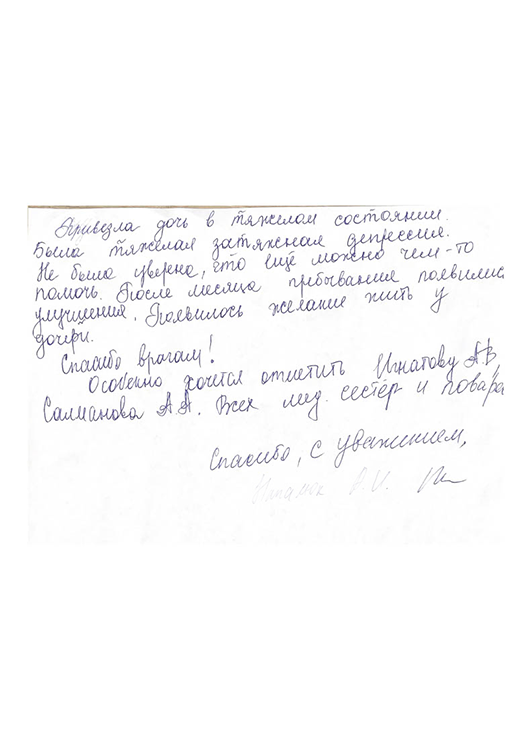 Привезла дочь в тяжелом состоянии.
Была тяжелая затяжная депрессия.
Не была уверена, что ещё можно чем-то
помочь. После месяца пребывания появились
улучшения. Появилось желание жить у
дочери.
Спасибо врачам!
Особенно хочется отметить Игнатову А.В,
Салманова А.А. Всех мед. сестёр и повара
Спасибо, с уважением,